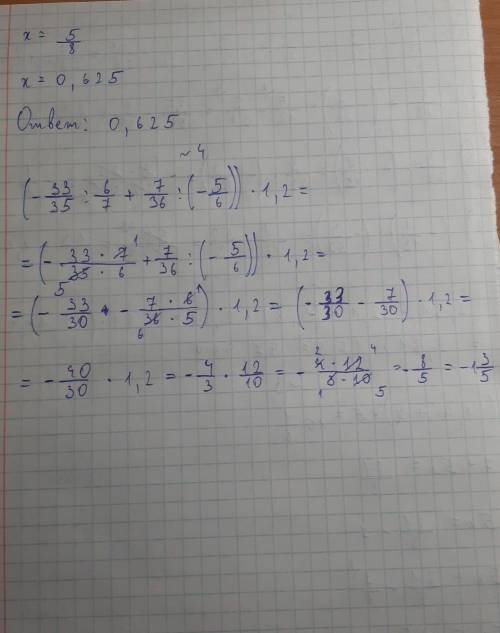 x = 5/8
x = 0,625
Ответ: 0,625
~ 4
(- 33/35 : 6/7 + 7/36 : (- 5/6)) · 1,2 =
= (- 33 · 7 1/35 · 6 5 + 7/36 : (- 5/6)) · 1,2 =
= (- 33/30 - 7 · 6 1/36 · 5 6) · 1,2 = (- 33/30 - 7/30) · 1,2 =
= - 40/30 · 1,2 = - 4/3 · 12/10 = - 2 4 · 12 4/1 3 · 10 5 = - 8/5 = -1 3/5